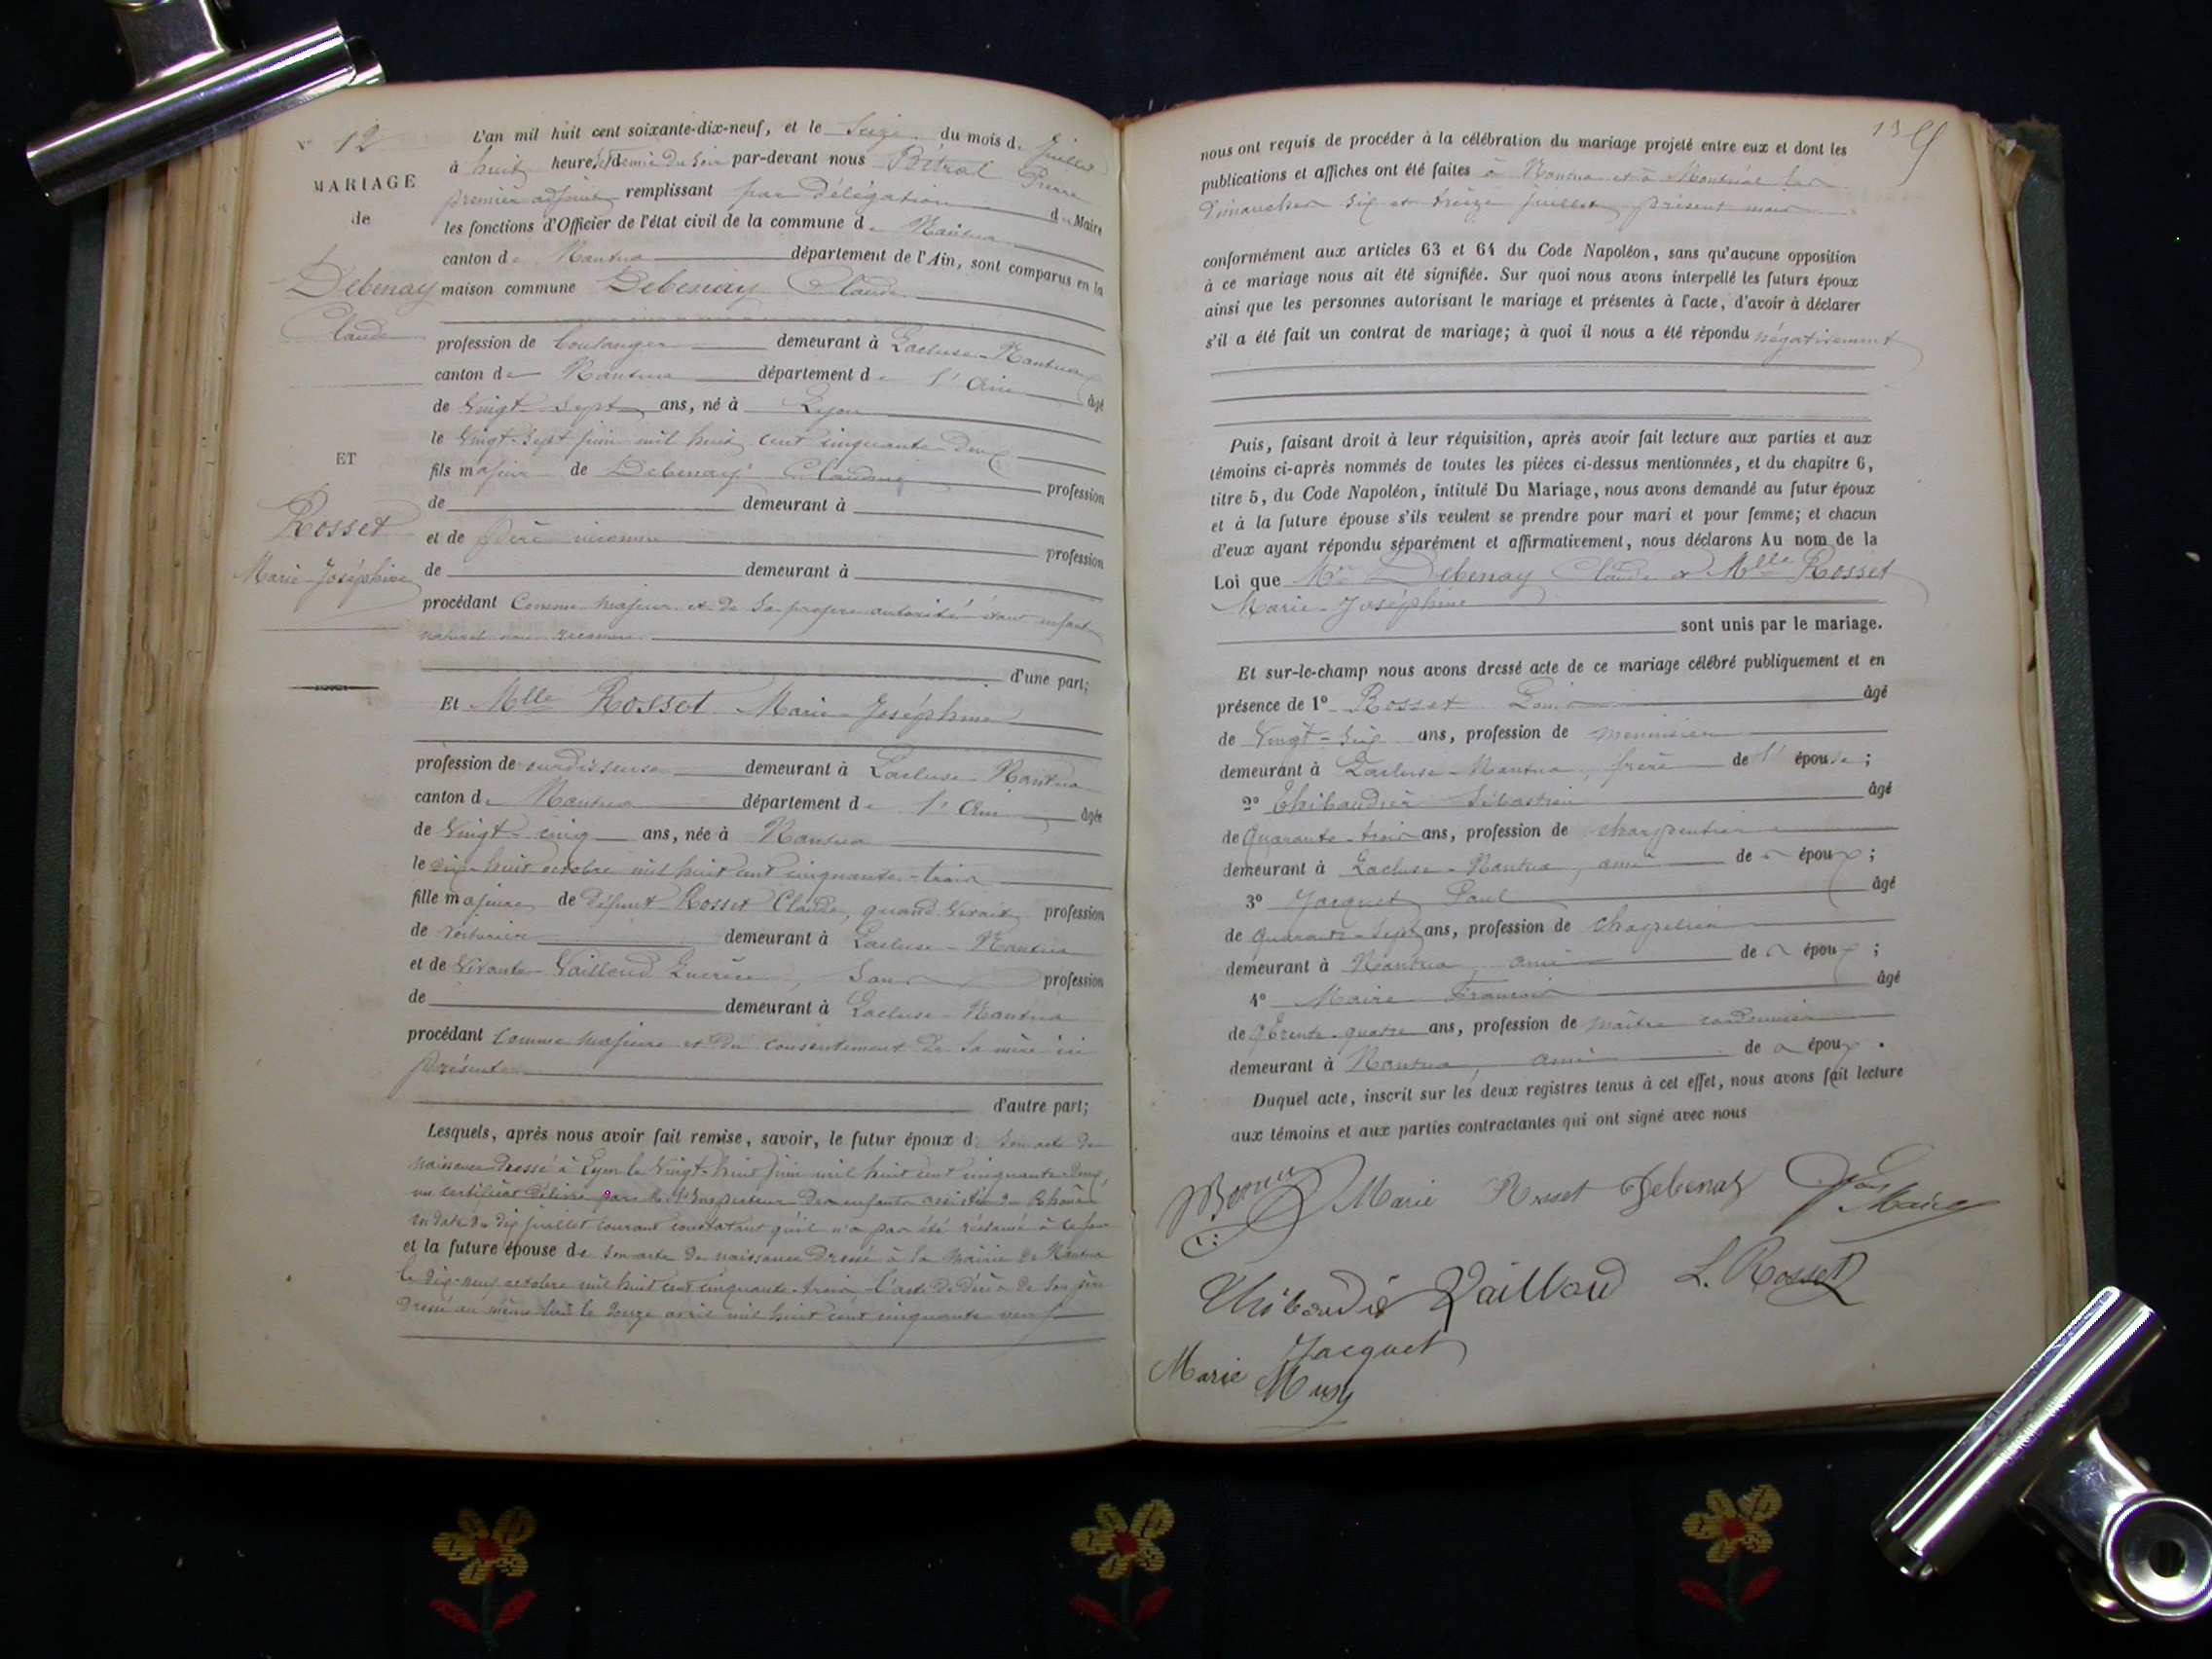 N° 12
MARIAGE
de
Debenay
Claude
ET
Rosset
Marie-Joséphine
L'an mil huit cent soixante-dix-neuf, et le Seize du mois de Juillet
à huit heures et demie du soir par-devant nous Pierre
premier adjoint remplissant par délégation du Maire
les fonctions d'Officier de l'état civil de la commune de Nantua
canton de Nantua département de l'Ain, sont comparus en la
maison commune Debenay Claude
profession de boulanger demeurant à Lacluse-Nantua
canton de Nantua département de l'Ain âgé
de Vingt-Sept ans, né à Lyon
le Vingt-Sept juin mil huit cent cinquante-deux
fils majeur de Debenay Claudine profession
de demeurant à
et de père inconnu profession
de demeurant à
procédant comme majeur et de sa propre autorité étant enfant
naturel non reconnu
d'une part;
Et Mlle Rosset Marie-Joséphine
profession de ourdisseuse demeurant à Lacluse-Nantua
canton de Nantua département de l'Ain âgée
de Vingt-cinq ans, née à Nantua
le dix-huit octobre mil huit cent cinquante-trois
fille majeure de défunt Rosset Claude, quand vivait profession
de voiturier demeurant à Lacluse-Nantua
et de vivante Vailloud , Sans profession
de demeurant à Lacluse-Nantua
procédant comme majeure et du consentement de sa mère ici
présente
d'autre part;
Lesquels, après nous avoir fait remise, savoir, le futur époux de son acte de
naissance dressé à Lyon le Vingt-huit juin mil huit cent cinquante-deux,
un certificat délivré par Mr l'Inspecteur des enfants assistés du Rhône
en date du dix juillet courant constatant qu'il n'a pas été réclamé à ce jour
et la future épouse de son acte de naissance dressé à la Mairie de Nantua
le dix-neuf octobre mil huit cent cinquante-trois l'acte de décès de son père
dressé au même lieu le douze avril mil huit cent cinquante-neuf
nous ont requis de procéder à la célébration du mariage projeté entre eux et dont les
publications et affiches ont été faites à Nantua et à Montréal les
dimanches six et treize juillet présent mois
conformément aux articles 63 et 64 du Code Napoléon, sans qu'aucune opposition
à ce mariage nous ait été signifiée. Sur quoi nous avons interpellé les futurs époux
ainsi que les personnes autorisant le mariage et présentes à l'acte, d'avoir à déclarer
s'il a été fait un contrat de mariage; à quoi il nous a été répondu négativement
Puis, faisant droit à leur réquisition, après avoir fait lecture aux parties et aux
témoins ci-après nommés de toutes les pièces ci-dessus mentionnées, et du chapitre 6,
titre 5, du Code Napoléon, intitulé Du Mariage, nous avons demandé au futur époux
et à la future épouse s'ils veulent se prendre pour mari et pour femme; et chacun
d'eux ayant répondu séparément et affirmativement, nous déclarons Au nom de la
Loi que Mr Debenay Claude et Mlle Rosset
Marie-Joséphine
sont unis par le mariage.
Et sur-le-champ nous avons dressé acte de ce mariage célébré publiquement et en
présence de 1° Rosset Louis âgé
de Vingt-Six ans, profession de menuisier
demeurant à Lacluse-Nantua, frère de l'épouse;
2° Thibaudier Sébastien âgé
de Quarante-trois ans, profession de charpentier
demeurant à Lacluse-Nantua, ami des époux;
3° Jacquet Paul âgé
de quarante-sept ans, profession de chapelier
demeurant à Nantua, ami des époux;
4° Maire François âgé
de trente-quatre ans, profession de maître cordonnier
demeurant à Nantua, ami des époux.
Duquel acte, inscrit sur les deux registres tenus à cet effet, nous avons fait lecture
aux témoins et aux parties contractantes qui ont signé avec nous
Marie Rosset Debenay
Maire
Thibaudier Vailloud L. Rosset
Jacquet
Marie Musy